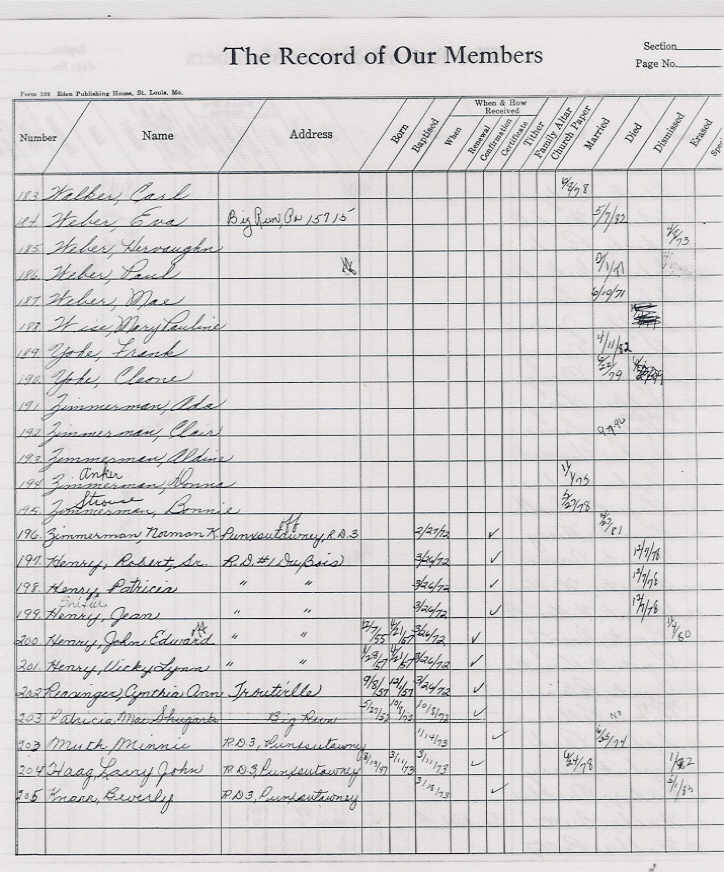 The Record of Our Members
Section
Page No.
Form 528 Eden Publishing House, St. Louis, Mo.
Number Name Address Born Baptised When When & How Received Renewal Confirmation Certificate Tither Family Altar Church Paper Married Died Dismissed Erased
183 Walker, Carl 6/3/78
184 Weber, Eva Big Run, Pa 15715 5/7/82
185 Weber, Hervaughn /73
186 Weber, Paul
187 Weber, Mae 6/19/71
188 Wise, Mary Pauline
189 Yohe, Frank 4/11/82
190 Yohe, Cleone /79
191 Zimmerman, Ada
192 Zimmerman, Clair
193 Zimmerman, Aldine
Anker
194 Zimmerman, Donna 1/75
Strouse
195 Zimmerman, Bonnie 5/27/78
off
196 Zimmerman Norman K. Punxsutawney, R.D.3 2/27/72 ✓ /81
197 Henry, Robert, Sr. R.D.#1 DuBois 3/26/72 ✓ 12/7/78
198 Henry, Patricia " " 3/26/72 ✓ 12/7/78
199 Henry, Jean " " 3/26/72 ✓ 12/7/78
off
200 Henry, John Edward " " 12/7/55 4/21/57 3/26/72 ✓ /80
201 Henry, Vicky Lynn " " /23/57 4/21/57 3/26/72 ✓
202 Reasinger, Cynthia Ann Troutville 9/8/57 12/57 3/26/72 ✓
203 Patricia Mae Shugarts Big Run 5/27/52 10/8/72 ✓ No
203 Muth, Minnie R.D.3, Punxsutawney 11/14/73 ✓ /74
204 Haag, Larry John R.D.3, Punxsutawney 3/11/73 3/11/73 ✓ 6/24/78 1/82
205 Knarr, Beverly R.D.3, Punxsutawney 3/18/73 ✓ 5/1/83